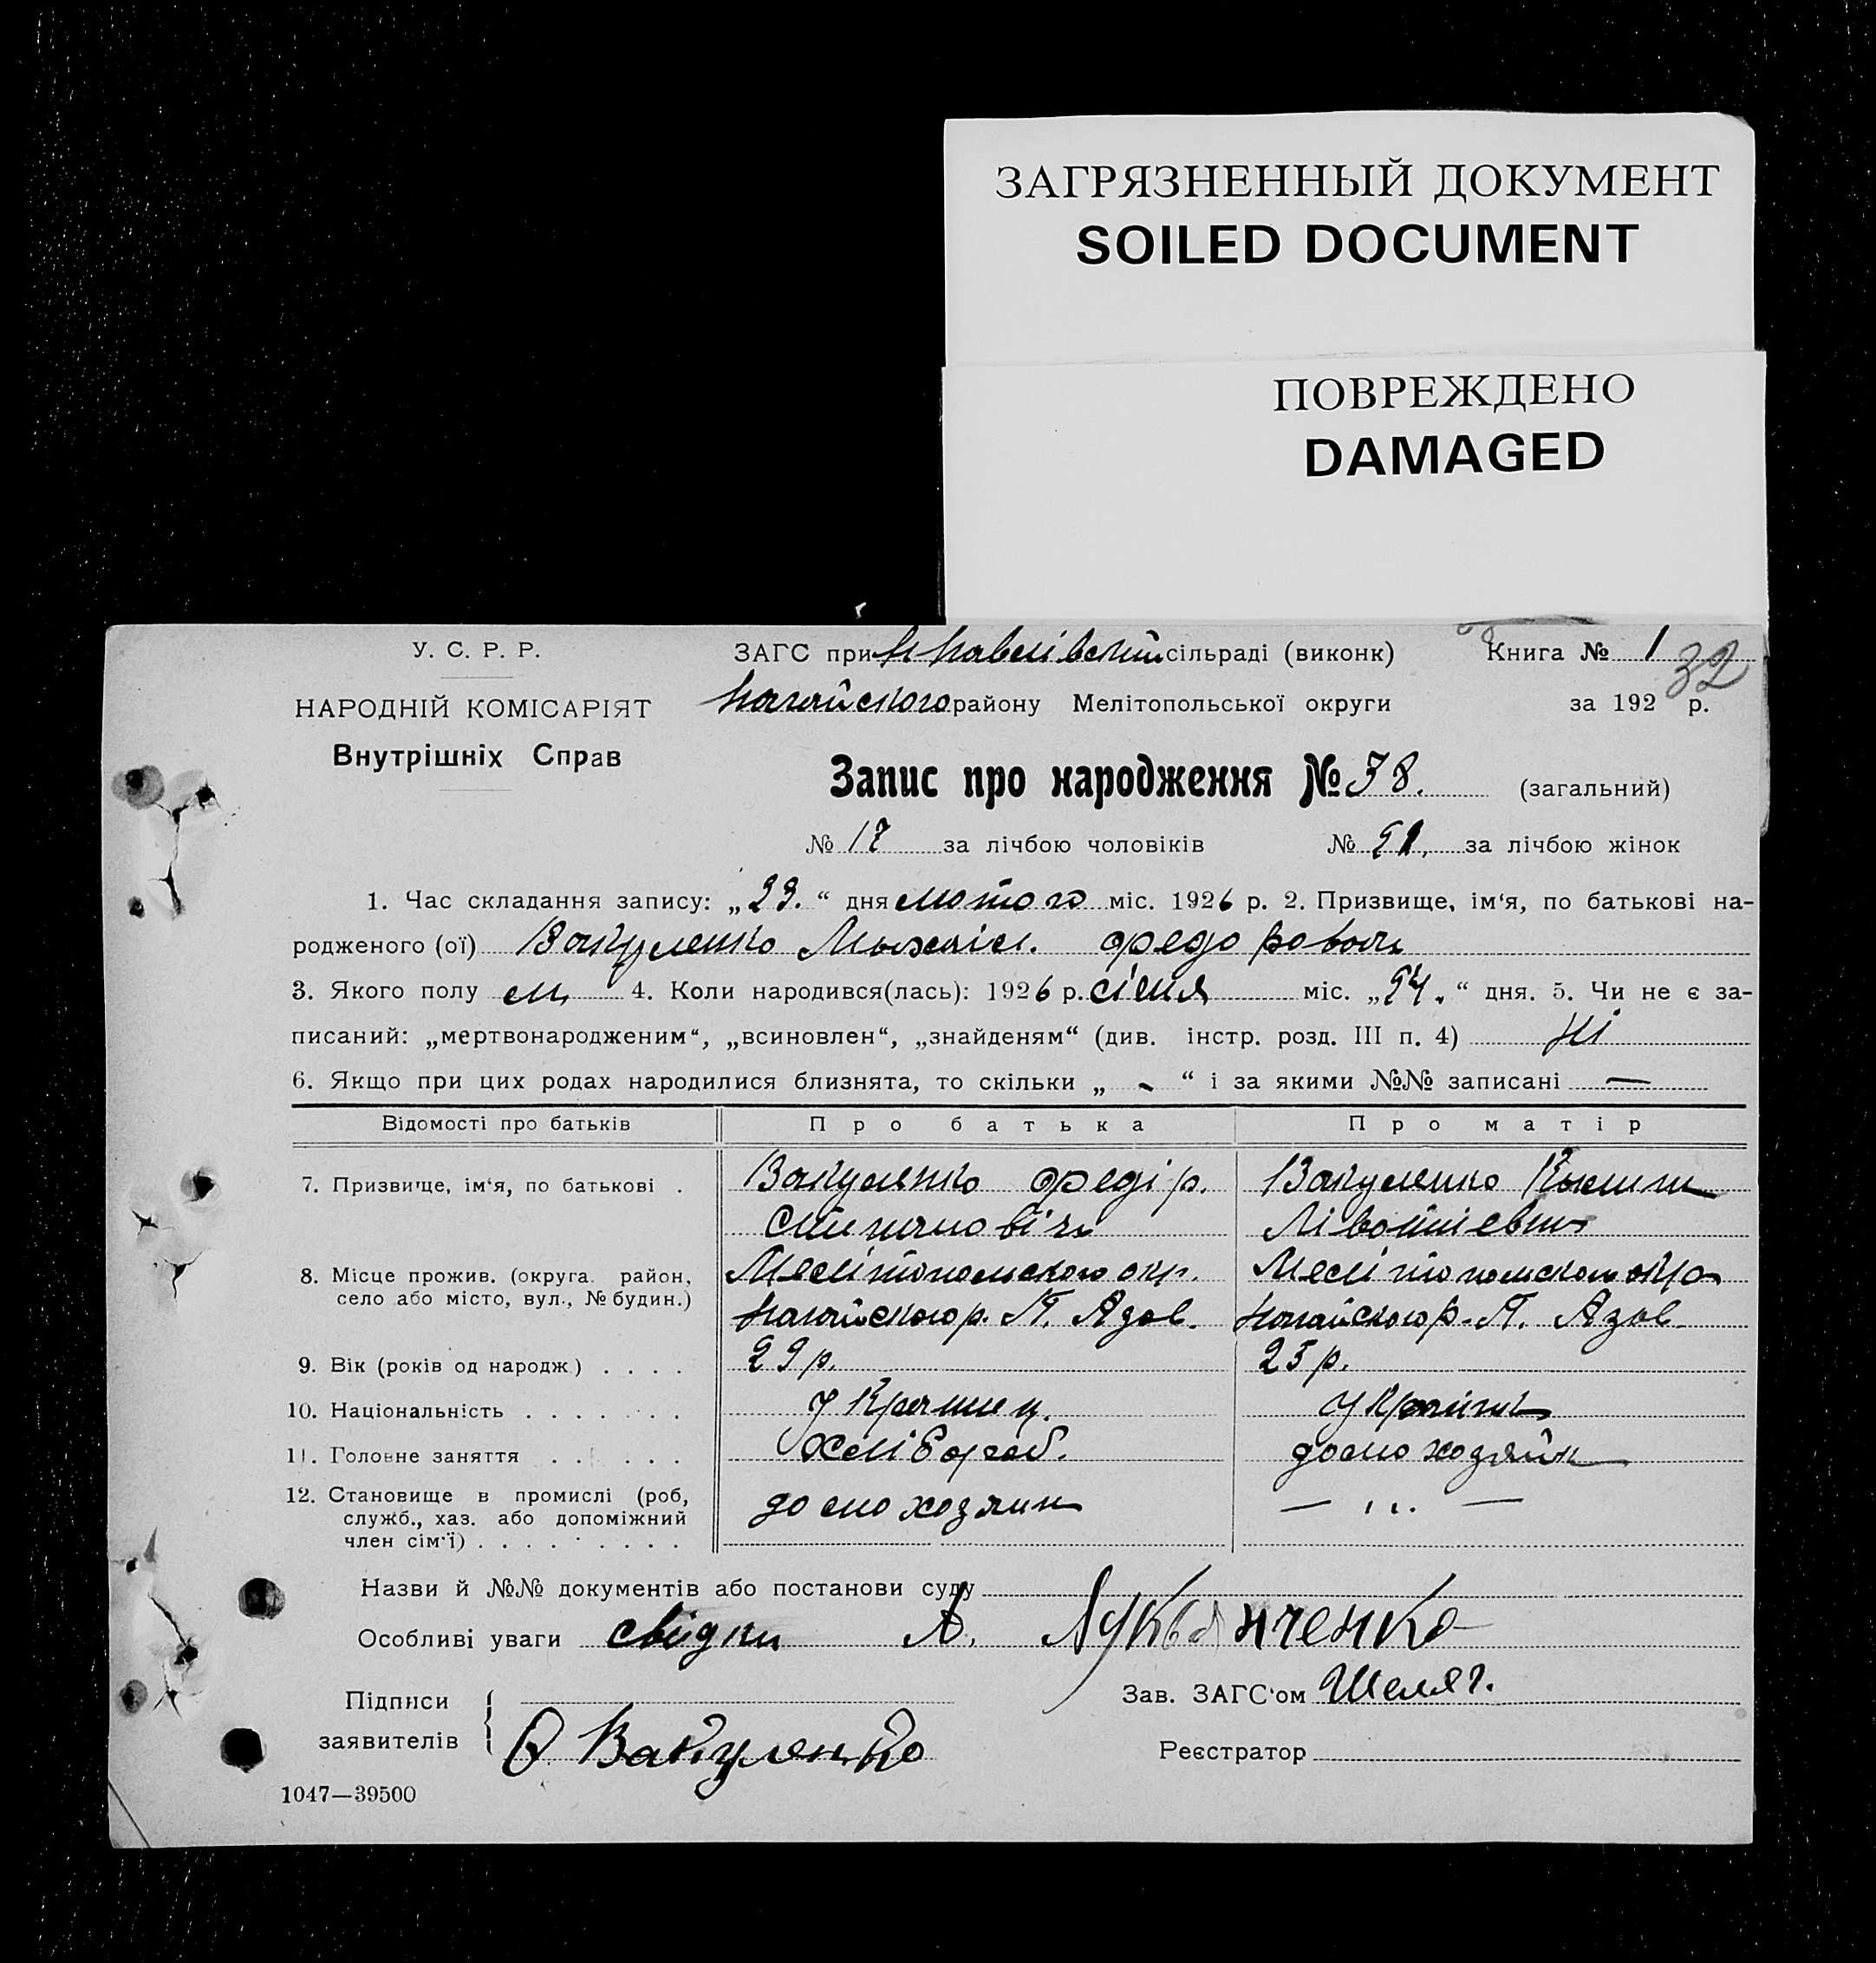 ЗАГРЯЗНЕННЫЙ ДОКУМЕНТ
SOILED DOCUMENT
ПОВРЕЖДЕНО
DAMAGED
У. С. Р. Р. ЗАГС при сільраді (виконк) Книга № 1
32
НАРОДНІЙ КОМІСАРІЯТ Ногайского району Мелітопольської округи за 192 р.
Внутрішніх Справ
Запис про народження № 38. (загальний)
№ 17 за лічбою чоловіків № 21, за лічбою жінок
1. Час складання запису: „23.“ дня лютого міс. 1926 р. 2. Призвище, ім‘я, по батькові на-
родженого (ої) Вакуленко Михаіл. Федорович
3. Якого полу м, 4. Коли народився(лась): 1926 р. січня міс. „24.“ дня. 5. Чи не є за-
писаний: „мертвонародженим“, „всиновлен“, „знайденям“ (див. інстр. розд. III п. 4) ні
6. Якщо при цих родах народилися близнята, то скільки „ - “ і за якими №№ записані —
Відомості про батьків Про батька Про матір
7. Призвище, ім‘я, по батькові . Вакуленко Федір. Вакуленко
Степанович
8. Місце прожив. (округа район, Мелітопольского окр. Мелітопольского окр
село або місто, вул., № будин.) Ногайского р. П. Азов. Ногайского р. П. Азов.
9. Вік (років од народж) . . . . 29 р. 25 р.
10. Національність . . . . . . . Украинец. Україн
11. Головне заняття . . . . . . Хлібороб. домохозяйк
12. Становище в промислі (роб, домохозяин — ,, . —
служб., хаз. або допоміжний
член сім‘ї) . . . . . . . . .
Назви й №№ документів або постанови суду
Особливі уваги свідки А. Лукьянченко
Підписи Зав. ЗАГС‘ом Шеляг.
заявителів Ф Вакуленко Реєстратор
1047—39500